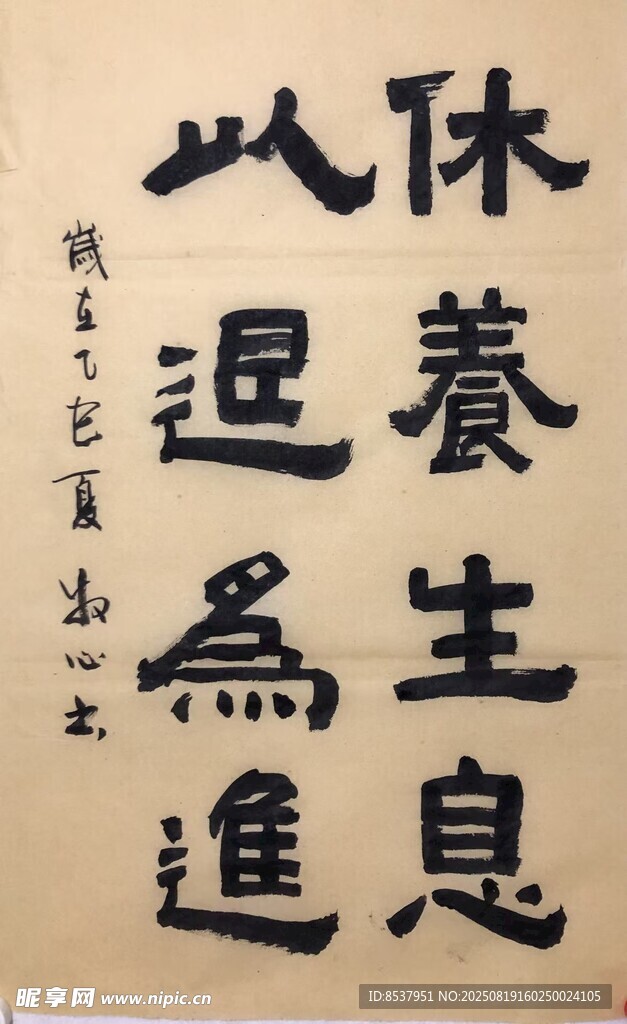 休養生息
以退為進
歲在乙巳夏牧心书
昵享网 www.nipic.cn
ID:8537951 NO:20250819160250024105